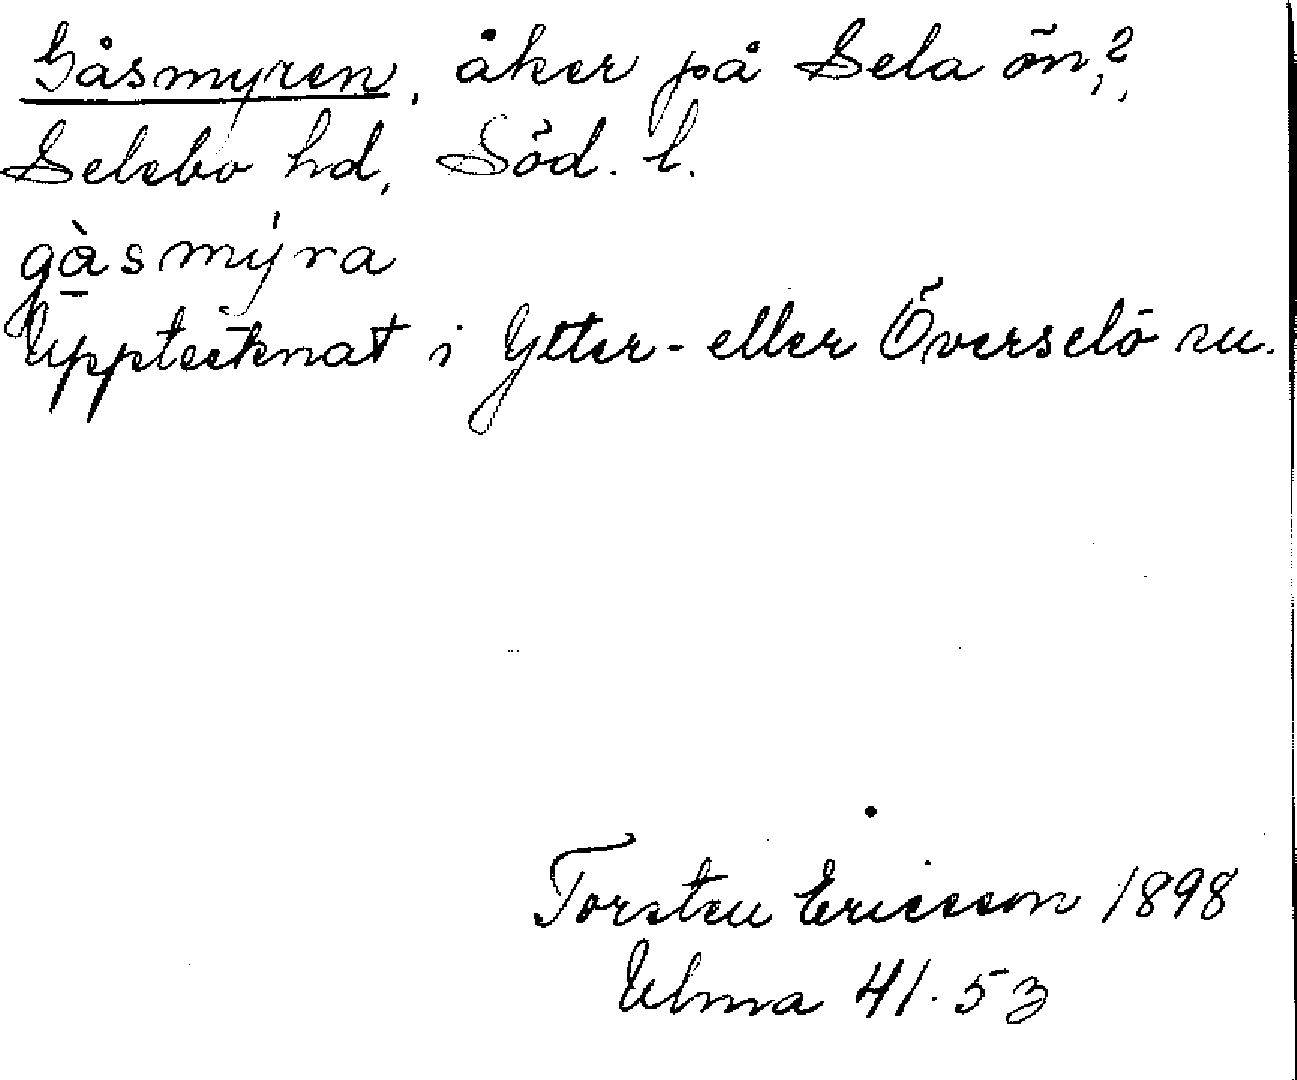 Gåsmyren, åker på Sela ön,?,
Selebo hd, Söd. l.
gàsmýra
Upptecknat i Ytter- eller Överselö sn.
Torsten Ericsson 1898
Ulma 41.53